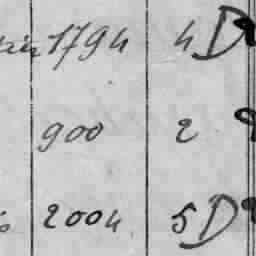 1794 4 D
900 2
2004 5 D